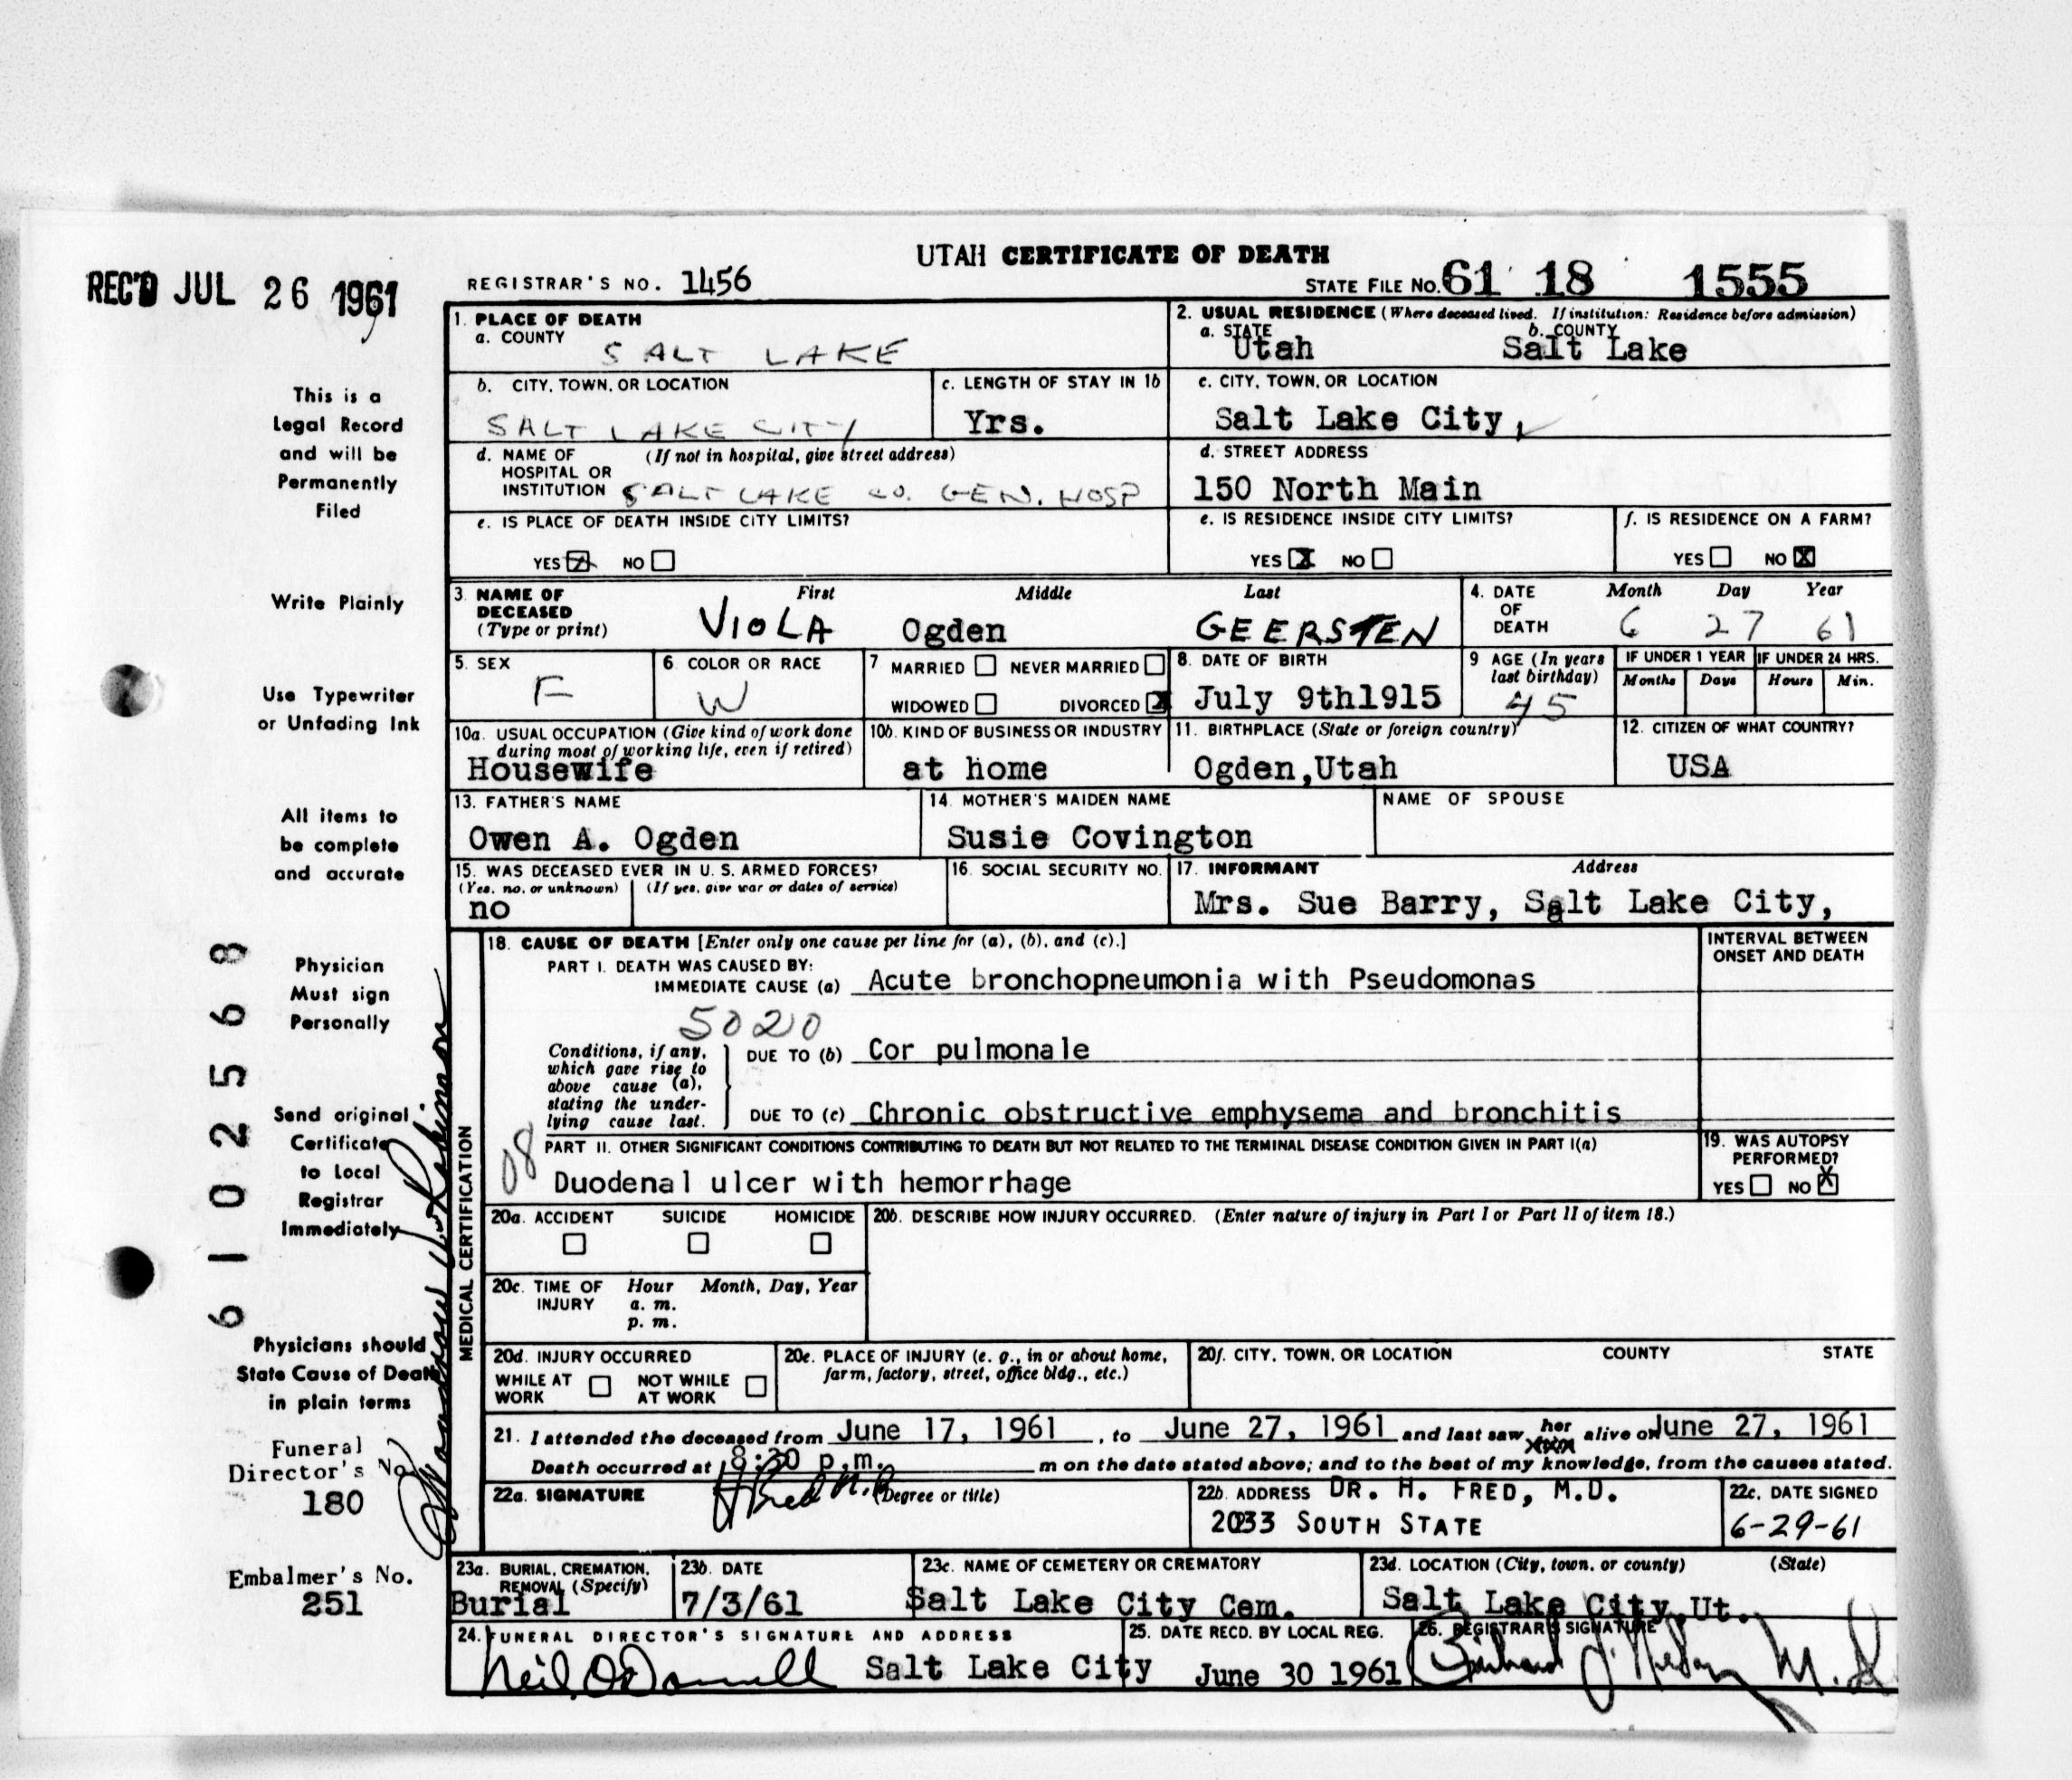 UTAH CERTIFICATE OF DEATH
REC'D JUL 26 1961
REGISTRAR'S NO. 1456
STATE FILE NO. 61 18 1555
1. PLACE OF DEATH
a. COUNTY
SALT LAKE
2. USUAL RESIDENCE (Where deceased lived. If institution: Residence before admission)
a. STATE b. COUNTY
Utah Salt Lake
b. CITY, TOWN, OR LOCATION
SALT LAKE CITY
c. LENGTH OF STAY IN 1b
Yrs.
c. CITY, TOWN, OR LOCATION
Salt Lake City,
d. NAME OF (If not in hospital, give street address)
HOSPITAL OR
INSTITUTION SALT LAKE CO. GEN. HOSP
d. STREET ADDRESS
150 North Main
e. IS PLACE OF DEATH INSIDE CITY LIMITS?
YES X NO
e. IS RESIDENCE INSIDE CITY LIMITS?
YES X NO
f. IS RESIDENCE ON A FARM?
YES NO X
3. NAME OF DECEASED (Type or print)
First Middle Last
VIOLA Ogden GEERSTEN
4. DATE OF DEATH
Month Day Year
6 27 61
5. SEX
F
6. COLOR OR RACE
W
7. MARRIED NEVER MARRIED
WIDOWED DIVORCED X
8. DATE OF BIRTH
July 9th1915
9. AGE (In years last birthday)
45
IF UNDER 1 YEAR IF UNDER 24 HRS.
Months Days Hours Min.
10a. USUAL OCCUPATION (Give kind of work done
during most of working life, even if retired)
Housewife
10b. KIND OF BUSINESS OR INDUSTRY
at home
11. BIRTHPLACE (State or foreign country)
Ogden,Utah
12. CITIZEN OF WHAT COUNTRY?
USA
13. FATHER'S NAME
Owen A. Ogden
14. MOTHER'S MAIDEN NAME
Susie Covington
NAME OF SPOUSE
15. WAS DECEASED EVER IN U. S. ARMED FORCES?
(Yes, no, or unknown) (If yes, give war or dates of service)
no
16. SOCIAL SECURITY NO.
17. INFORMANT Address
Mrs. Sue Barry, Salt Lake City,
18. CAUSE OF DEATH [Enter only one cause per line for (a), (b), and (c).]
INTERVAL BETWEEN
ONSET AND DEATH
PART I. DEATH WAS CAUSED BY:
IMMEDIATE CAUSE (a) Acute bronchopneumonia with Pseudomonas
5020
Conditions, if any,
which gave rise to
above cause (a),
stating the under-
lying cause last.
DUE TO (b) Cor pulmonale
DUE TO (c) Chronic obstructive emphysema and bronchitis
08
PART II. OTHER SIGNIFICANT CONDITIONS CONTRIBUTING TO DEATH BUT NOT RELATED TO THE TERMINAL DISEASE CONDITION GIVEN IN PART I(a)
Duodenal ulcer with hemorrhage
19. WAS AUTOPSY
PERFORMED?
YES NO X
20a. ACCIDENT SUICIDE HOMICIDE
20b. DESCRIBE HOW INJURY OCCURRED. (Enter nature of injury in Part I or Part II of item 18.)
20c. TIME OF INJURY Hour Month, Day, Year
a. m.
p. m.
20d. INJURY OCCURRED
WHILE AT WORK NOT WHILE AT WORK
20e. PLACE OF INJURY (e. g., in or about home,
farm, factory, street, office bldg., etc.)
20f. CITY, TOWN, OR LOCATION COUNTY STATE
21. I attended the deceased from June 17, 1961, to June 27, 1961 and last saw her alive on June 27, 1961
Death occurred at 8:30 p.m. m on the date stated above; and to the best of my knowledge, from the causes stated.
22a. SIGNATURE H Fred M.D. (Degree or title)
22b. ADDRESS DR. H. FRED, M.D.
2033 SOUTH STATE
22c. DATE SIGNED
6-29-61
23a. BURIAL, CREMATION,
REMOVAL (Specify)
Burial
23b. DATE
7/3/61
23c. NAME OF CEMETERY OR CREMATORY
Salt Lake City Cem.
23d. LOCATION (City, town, or county) (State)
Salt Lake City,Ut.
24. FUNERAL DIRECTOR'S SIGNATURE AND ADDRESS
Neil O'Donnell Salt Lake City
25. DATE RECD. BY LOCAL REG.
June 30 1961
26. REGISTRAR'S SIGNATURE
MEDICAL CERTIFICATION
This is a
Legal Record
and will be
Permanently
Filed
Write Plainly
Use Typewriter
or Unfading Ink
All items to
be complete
and accurate
Physician
Must sign
Personally
Send original
Certificate
to Local
Registrar
Immediately
Physicians should
State Cause of Death
in plain terms
Funeral
Director's No.
180
Embalmer's No.
251
6102568